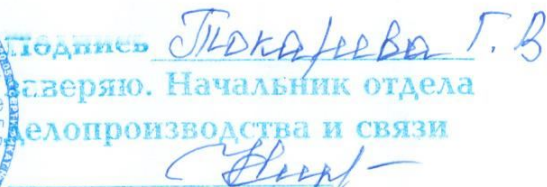 Подпись Токарева Г. В
заверяю. Начальник отдела
делопроизводства и связи